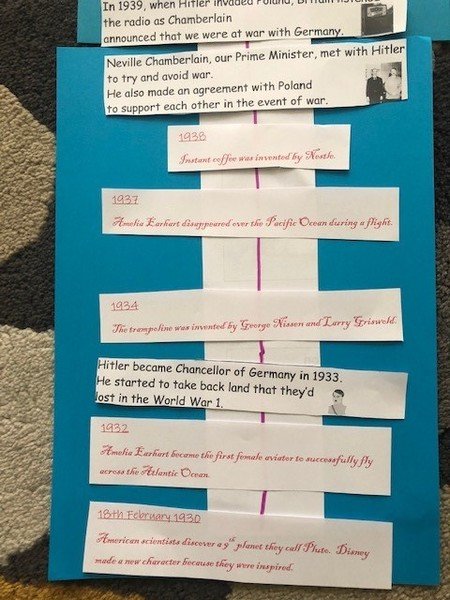 In 1939, when Hitler invaded Poland, Britain
the radio as Chamberlain
announced that we were at war with Germany.
Neville Chamberlain, our Prime Minister, met with Hitler
to try and avoid war.
He also made an agreement with Poland
to support each other in the event of war.
1938
Instant coffee was invented by Nestle.
1937
Amelia Earhart disappeared over the Pacific Ocean during a flight.
1934
The trampoline was invented by George Nissen and Larry Griswold.
Hitler became Chancellor of Germany in 1933.
He started to take back land that they'd
lost in the World War 1.
1932
Amelia Earhart became the first female aviator to successfully fly
across the Atlantic Ocean.
18th February 1930
American scientists discover a 9th planet they call Pluto. Disney
made a new character because they were inspired.